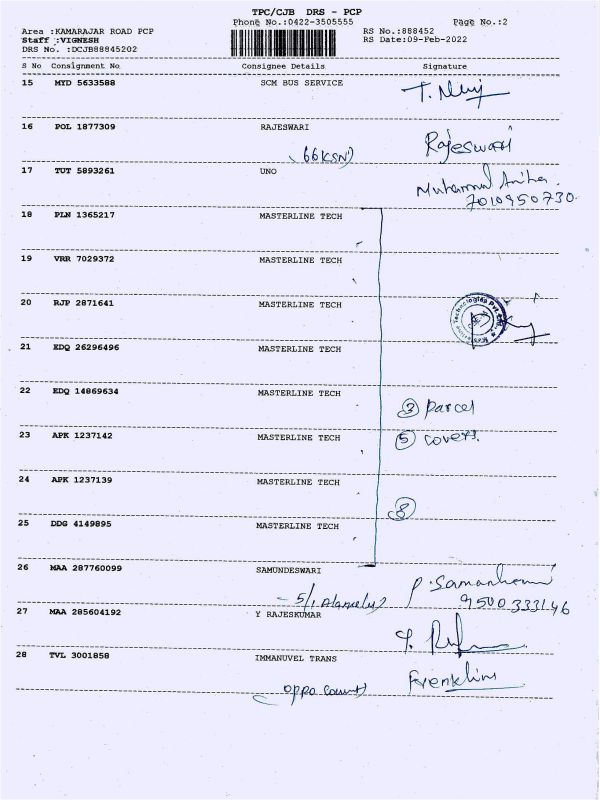 TPC/CJB DRS - PCP
Phone No.:0422-3505555 Page No.:2
Area :KAMARAJAR ROAD PCP RS No.:888452
Staff :VIGNESH RS Date:09-Feb-2022
DRS No. :DCJB88845202
S No Consignment No Consignee Details Signature
15 MYD 5633588 SCM BUS SERVICE
16 POL 1877309 RAJESWARI Rajeswari
17 TUT 5893261 UNO
7010950730
18 PLN 1365217 MASTERLINE TECH
19 VRR 7029372 MASTERLINE TECH
20 RJP 2871641 MASTERLINE TECH
21 EDQ 26296496 MASTERLINE TECH
22 EDQ 14869634 MASTERLINE TECH
3 parcel
23 APK 1237142 MASTERLINE TECH 5 covers
24 APK 1237139 MASTERLINE TECH
8
25 DDG 4149895 MASTERLINE TECH
26 MAA 287760099 SAMUNDESWARI
9500333146
27 MAA 285604192 Y RAJESKUMAR
28 TVL 3001858 IMMANUVEL TRANS
Frenklin